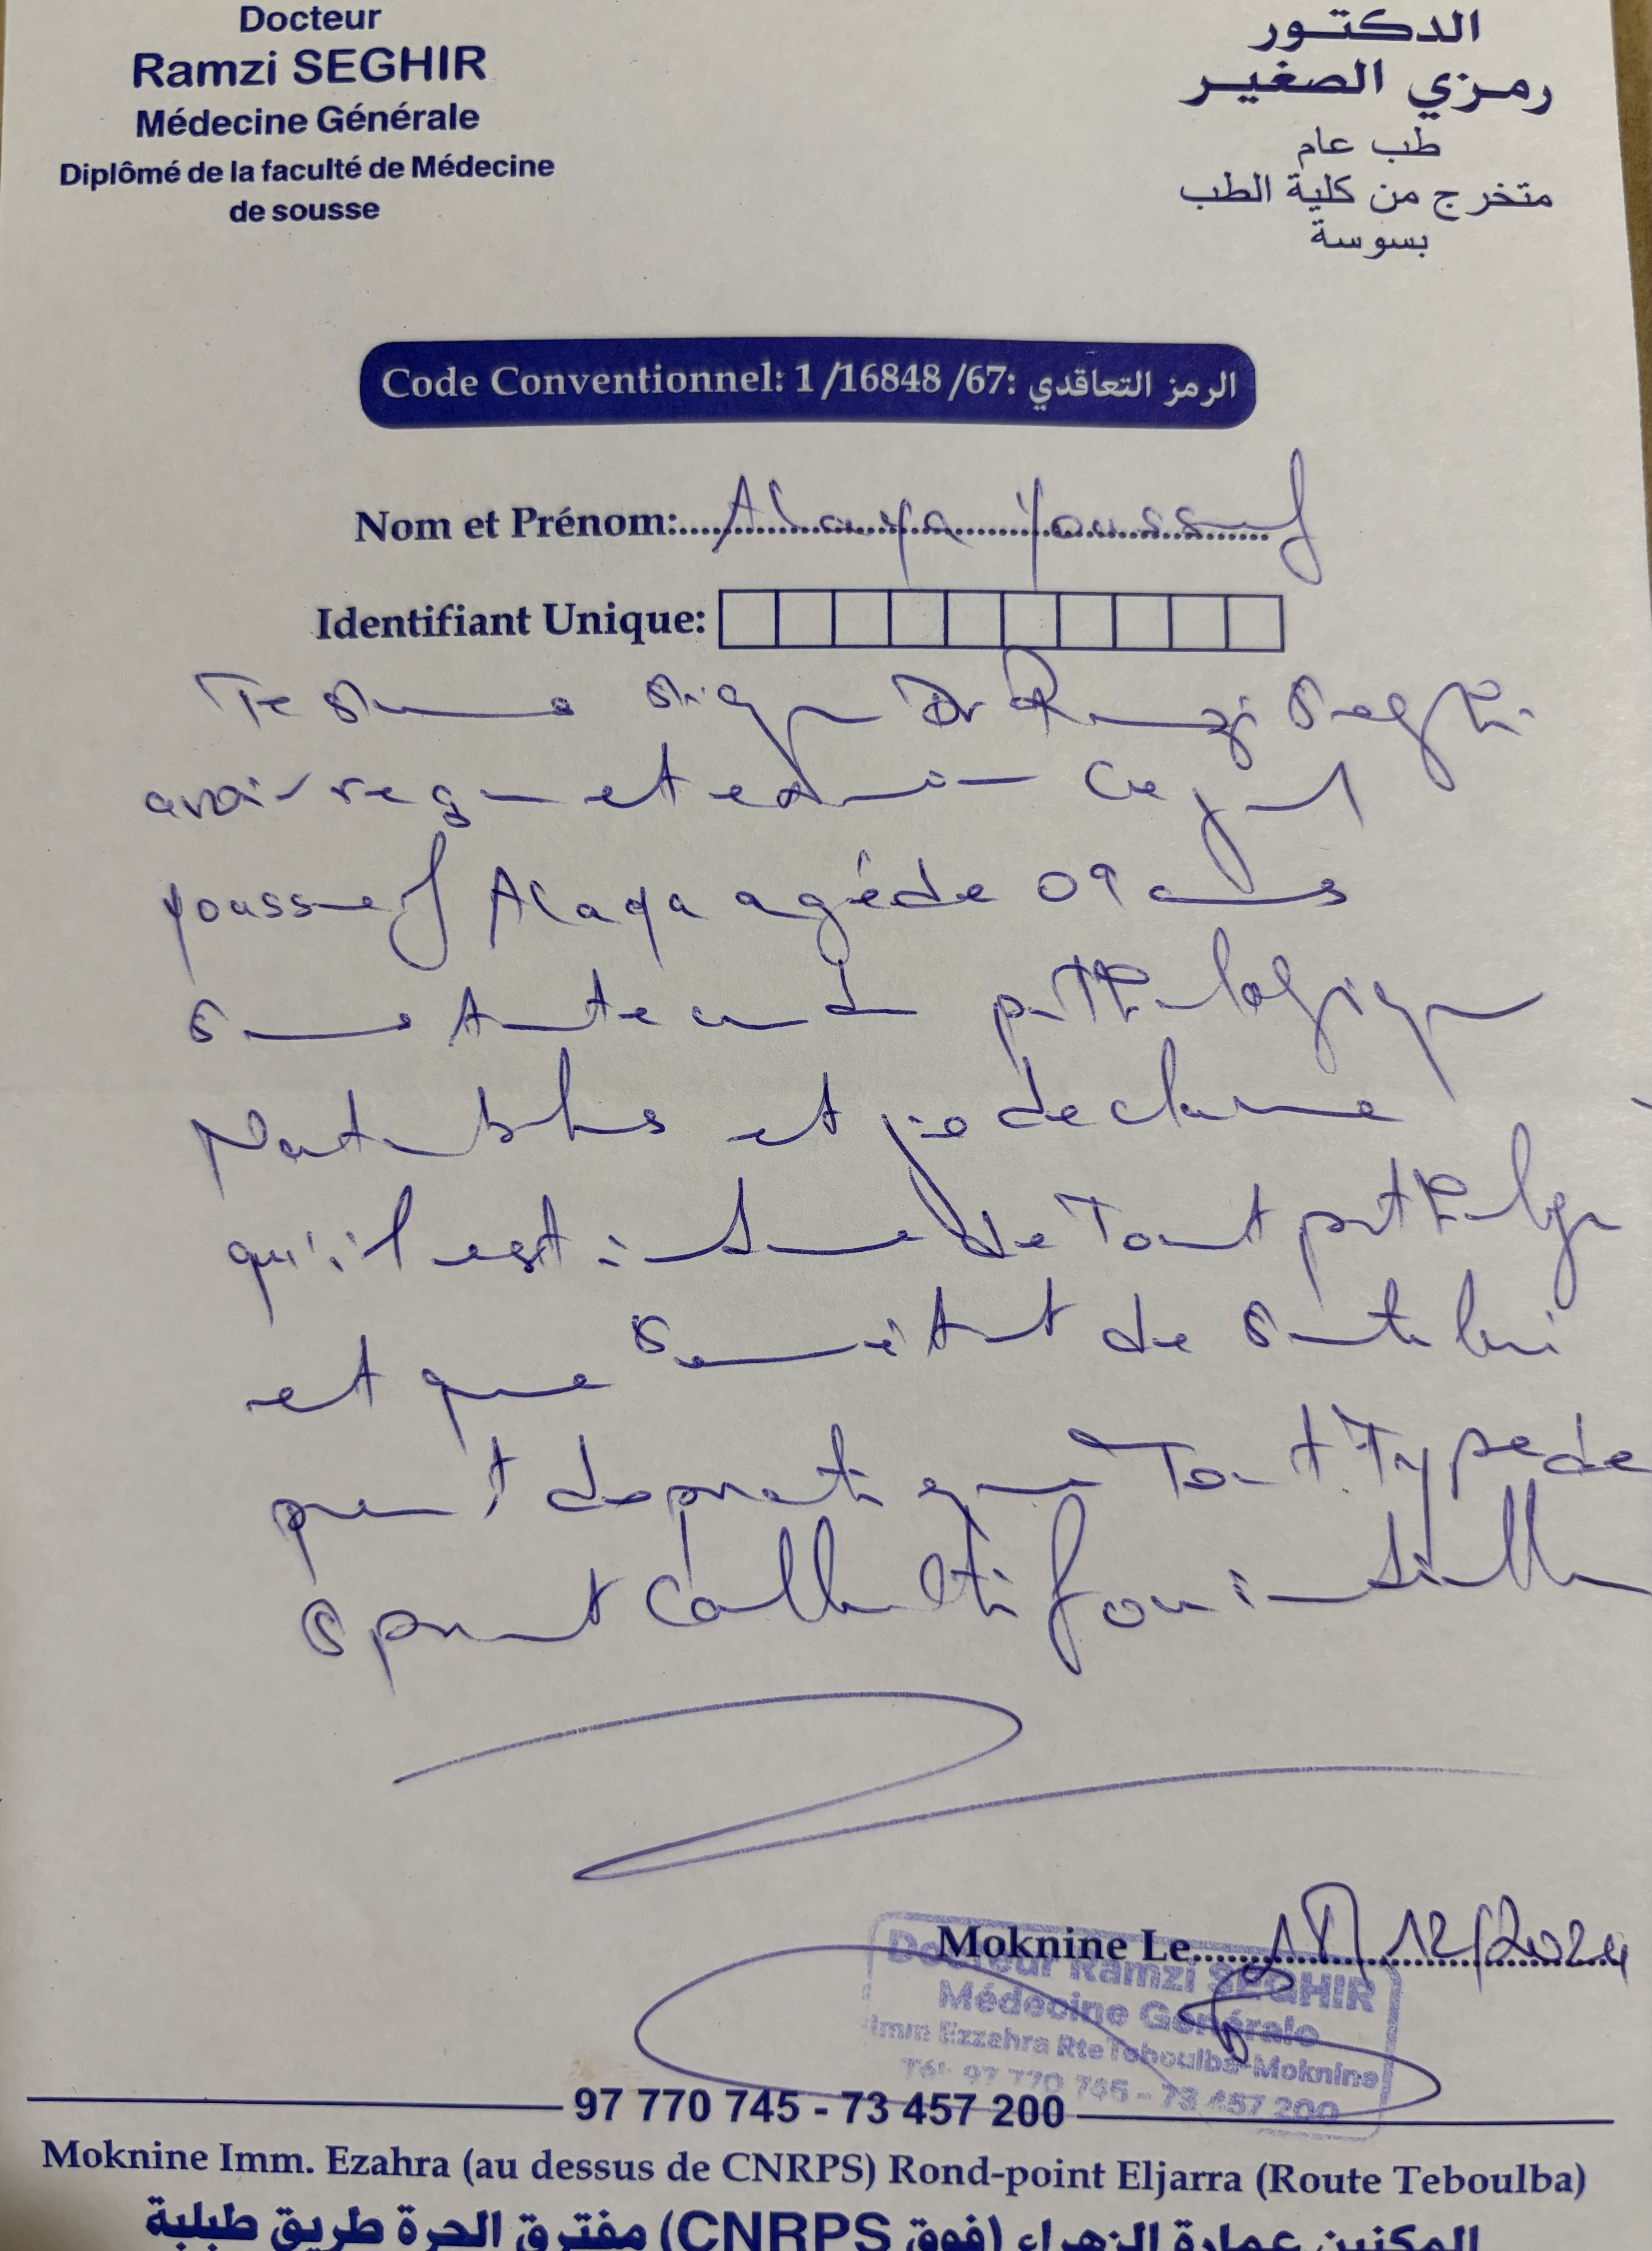 Docteur
Ramzi SEGHIR
Médecine Générale
Diplômé de la faculté de Médecine
de sousse
الدكتور
رمزي الصغير
طب عام
متخرج من كلية الطب
بسوسة
Code Conventionnel: 1 /16848 /67: الرمز التعاقدي
Nom et Prénom: Alaya Youssef
Identifiant Unique:
Je soussigné Dr Ramzi Seghir
avoir reçu et examiné ce jour
Youssef Alaya agé de 09 ans
sans antecedents pathologique
Notables et je declare
qu'il est indemne de Tout pathologie
et que son état de santé lui
permet de pratique Tout Type de
sport Collectif ou individuelle
Moknine Le 12/2024
Docteur Ramzi SEGHIR
Médecine Générale
Imm Ezzahra Rte Teboulba-Moknine
Tél: 97 770 745 - 73 457 200
97 770 745 - 73 457 200
Moknine Imm. Ezahra (au dessus de CNRPS) Rond-point Eljarra (Route Teboulba)
المكنين عمارة الزهراء (فوق CNRPS) مفترق الجرة طريق طبلبة